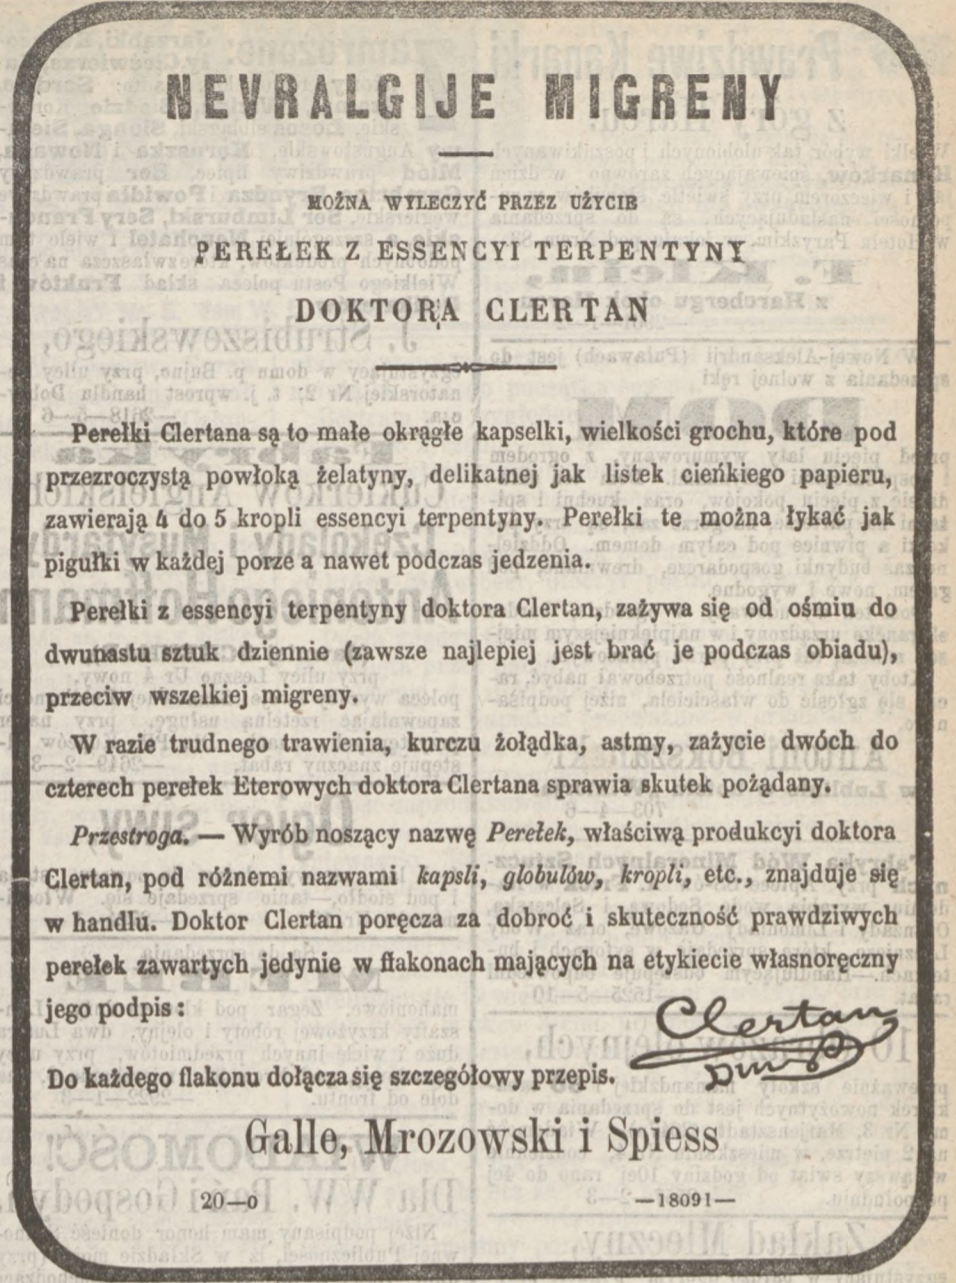 NEVRALGIJE MIGRENY
MOŻNA WYLECZYĆ PRZEZ UŻYCIE
PEREŁEK Z ESSENCYI TERPENTYNY
DOKTORA CLERTAN
Perełki Clertana są to małe okrągłe kapselki, wielkości grochu, które pod
przezroczystą powłoką żelatyny, delikatnej jak listek cieńkiego papieru,
zawierają 4 do 5 kropli essencyi terpentyny. Perełki te można łykać jak
pigułki w każdej porze a nawet podczas jedzenia.
Perełki z essencyi terpentyny doktora Clertan, zażywa się od ośmiu do
dwunastu sztuk dziennie (zawsze najlepiej jest brać je podczas obiadu),
przeciw wszelkiej migreny.
W razie trudnego trawienia, kurczu żołądka, astmy, zażycie dwóch do
czterech perełek Eterowych doktora Clertana sprawia skutek pożądany.
Przestroga. — Wyrób noszący nazwę Perełek, właściwą produkcyi doktora
Clertan, pod różnemi nazwami kapsli, globulów, kropli, etc., znajduje się
w handlu. Doktor Clertan poręcza za dobroć i skuteczność prawdziwych
perełek zawartych jedynie w flakonach mających na etykiecie własnoręczny
jego podpis:
Clertan
Do każdego flakonu dołącza się szczegółowy przepis.
Galle, Mrozowski i Spiess
20—0 —18091—